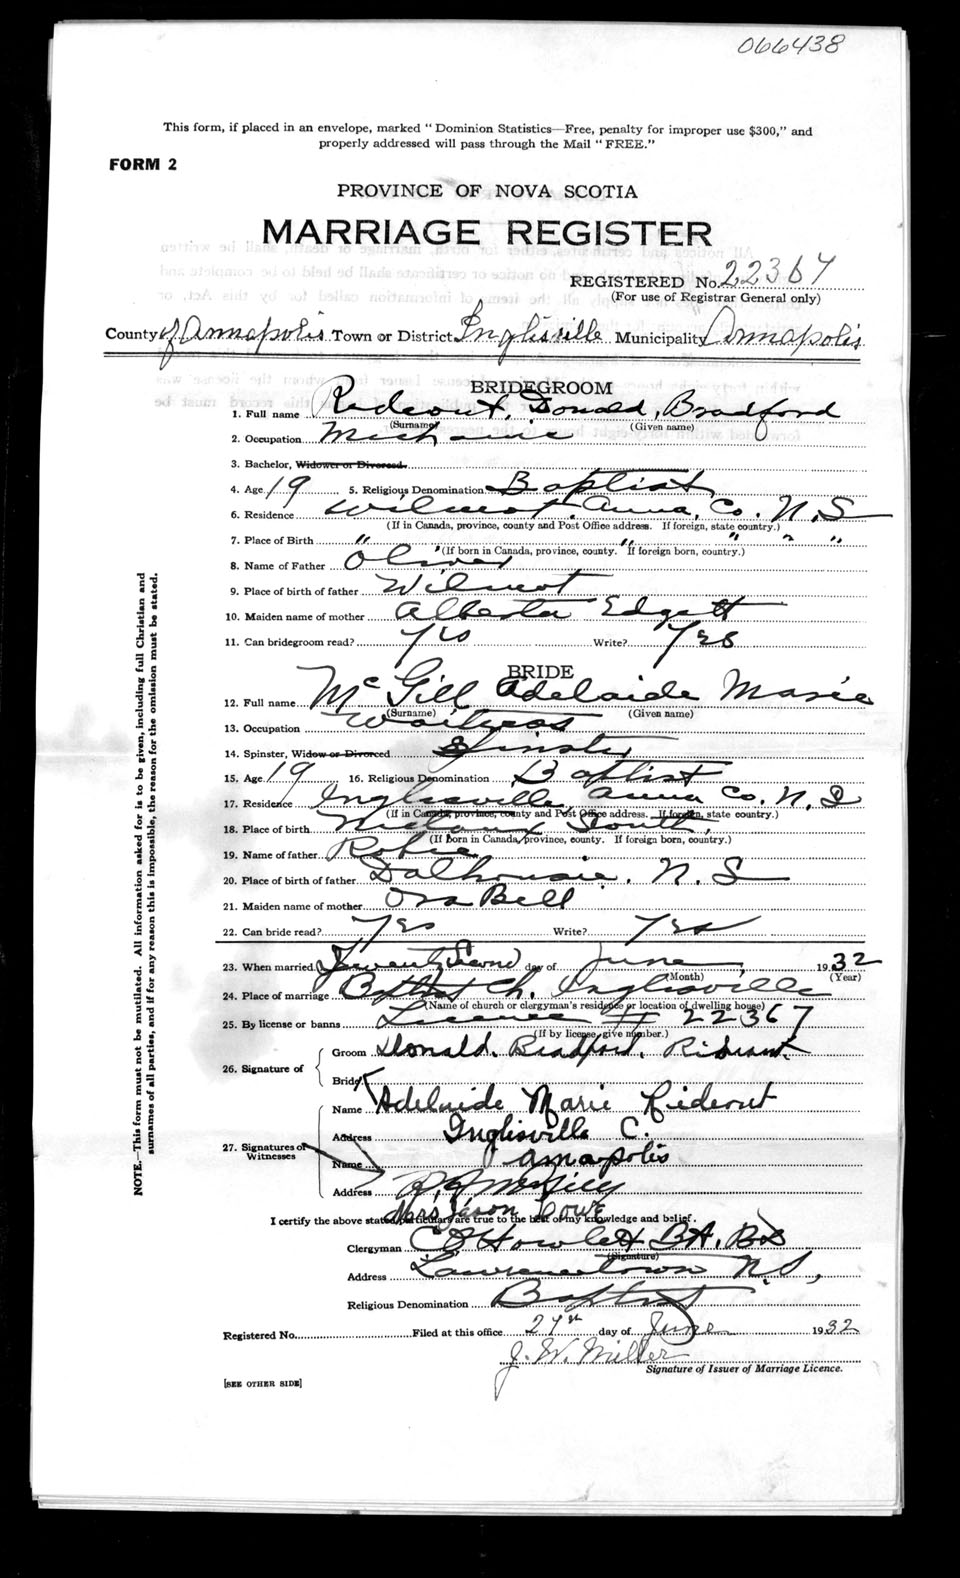 066438
This form, if placed in an envelope, marked "Dominion Statistics—Free, penalty for improper use $300," and
properly addressed will pass through the Mail "FREE."
FORM 2
PROVINCE OF NOVA SCOTIA
MARRIAGE REGISTER
REGISTERED No. 22367
(For use of Registrar General only)
County of Annapolis Town or District Inglisville Municipality Annapolis
BRIDEGROOM
1. Full name Rideout, Donald, Bradford
(Surname) (Given name)
2. Occupation Mechanic
3. Bachelor, Widower or Divorced.
4. Age 19 5. Religious Denomination Baptist
6. Residence Wilmot. Anna, Co. N.S
(If in Canada, province, county and Post Office address. If foreign, state country.)
7. Place of Birth " " " " "
(If born in Canada, province, county. If foreign born, country.)
8. Name of Father Oliver
9. Place of birth of father Wilmot
10. Maiden name of mother Alberta Edgett
11. Can bridegroom read? Yes Write? Yes
BRIDE
12. Full name McGill Adelaide Marie
(Surname) (Given name)
13. Occupation Waitress
14. Spinster, Widow or Divorced Spinster
15. Age 19 16. Religious Denomination Baptist
17. Residence Inglisville, Anna Co. N. S
(If in Canada, province, county and Post Office address. If foreign, state country.)
18. Place of birth Nictaux South,
(If born in Canada, province, county. If foreign born, country.)
19. Name of father Robie
20. Place of birth of father Dalhousie. N. S
21. Maiden name of mother Ora Bell
22. Can bride read? Yes Write? Yes
23. When married Twenty Second day of June 1932
(Month) (Year)
24. Place of marriage Baptist Ch. Inglisville
(Name of church or clergyman's residence or location of dwelling house)
25. By license or banns License # 22367
(If by license, give number.)
26. Signature of
Groom Donald. Bradford. Rideout.
Bride
27. Signatures of Witnesses
Name Adelaide Marie Rideout
Address Inglisville C.
Name Annapolis
Address
Mrs Jason Lowe
I certify the above stated particulars are true to the best of my knowledge and belief.
Clergyman C E Howlett BA. BD
(Signature)
Address Lawrencetown N.S,
Religious Denomination Baptist
Registered No. Filed at this office 27th day of June 1932
J. W. Miller
Signature of Issuer of Marriage Licence.
[SEE OTHER SIDE]
NOTE.—This form must not be mutilated. All information asked for is to be given, including full Christian and
surnames of all parties, and if for any reason this is impossible, the reason for the omission must be stated.